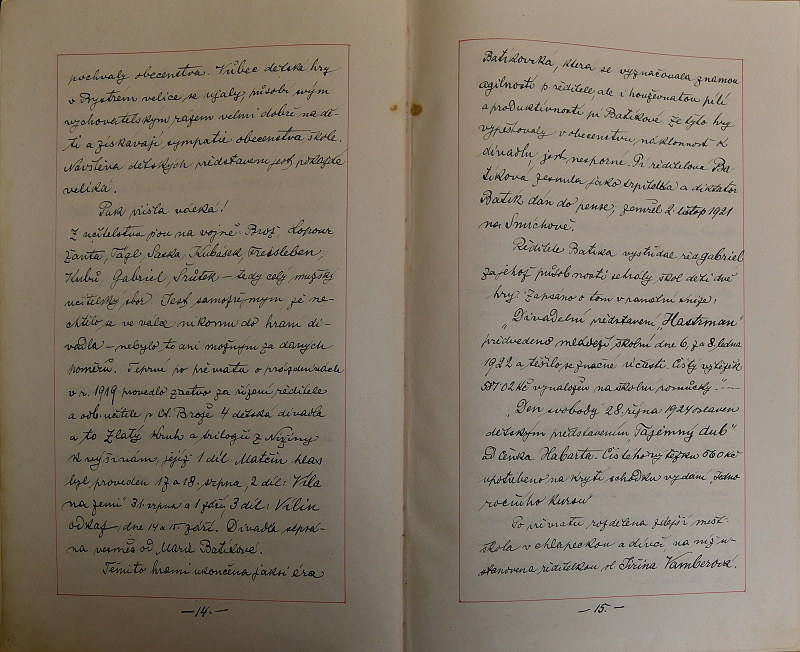 pochvaly obecenstva. Vůbec dětské hry
v Bystrém velice se ujaly, působí svým
vychovatelským rázem velmi dobře na dě-
ti a získávají sympatie obecenstva škole.
Návštěva dětských představení jest pokaždé
veliká.
Pak přišla válka!
Z učitelstva jsou na vojně: Brož, Lopour
Žanta, Tägl, Saska, Kubásek, Freisleben,
Kubů, Gabriel, Šrůtek – tedy celý mužský
učitelský sbor. Jest samozřejmým že ne-
chtělo se ve válce nikomu do hraní di-
vadla – nebylo to ani možným za daných
poměrů. Teprve po převratu o prázdninách
v r. 1919 provedlo žactvo za řízení ředitele
a odb. učitele p. Ol. Brože 4 dětská divadla
a to Zlatý kruh a trilogii z Nížiny
k výšinám, jejíž 1 díl Matčin hlas
byl proveden 17 a 18. srpna, 2 díl: Víla
na zemi" 31. srpna a 1 září, 3 díl: Vílin
odkaz, dne 14 a 15. září. Divadla sepsá-
na vesměs od Marie Batíkové.
Těmito hrami ukončena jaksi éra
—14.—
Batíkovská, která se vyznačovala známou
agilností p. ředitele, ale i houževnatou pílí
a produktivností pí Batíkové že tyto hry
vypěstovaly v obecenstvu, náklonnost k
divadlu, jest nesporné. Pí ředitelová Ba-
tíková zesnula jako trpitelka a direktor
Batík dán do pense, zemřel 2. listop 1921
na Smíchově.
Ředitele Batíka vystřídal řed. Gabriel
za jehož působnosti sehrály škol. děti dvě
hry. Zapsáno o tom v pamětní knize:
„Divadelní představení „Hastrman"
předvedeno mládeží školní dne 6, 7 a 8. ledna
1922 a těšilo se značné účasti. Čistý výtěžek
557·02 Kč vynaložen na školní pomůcky." —
„Den svobody 28. října 1924 oslaven
dětským představením „Tajemný dub"
od Čeňka Habarta. Čistého výtěžku 560 Kč
upotřebeno na krytí schodku vydání, jedno
ročního kursu
Po převratu rozdělena zdejší měšť.
škola v chlapeckou a dívčí, na niž u-
stanovena ředitelkou, sl. Jiřina Vamberová.
—15.—